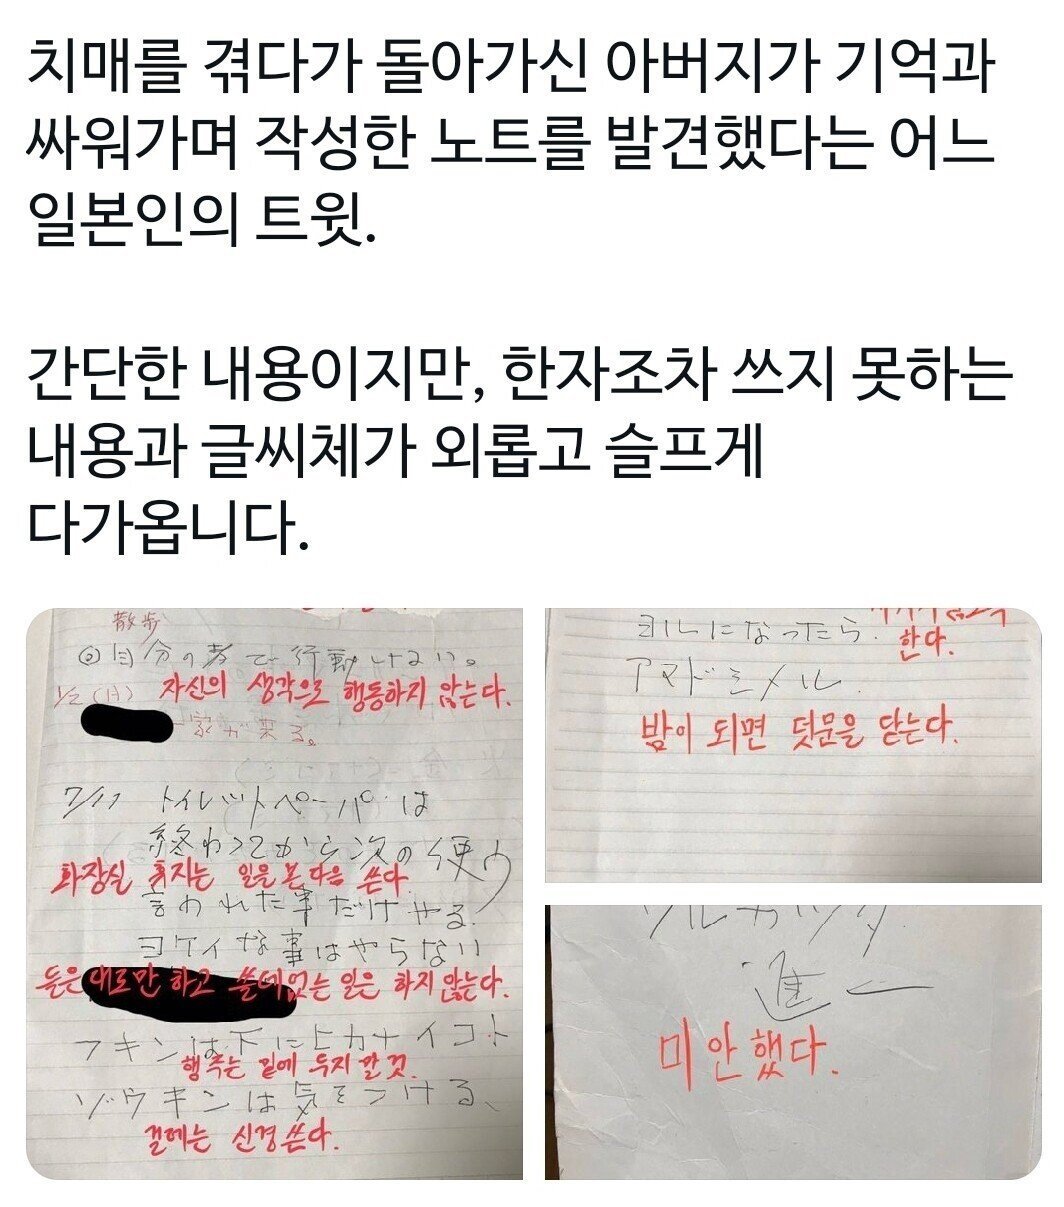 치매를 겪다가 돌아가신 아버지가 기억과
싸워가며 작성한 노트를 발견했다는 어느
일본인의 트윗.
간단한 내용이지만, 한자조차 쓰지 못하는
내용과 글씨체가 외롭고 슬프게
다가옵니다.
散歩
◎自分の考で行動しない。
1/2(月) 자신의 생각으로 행동하지 않는다.
家が来る。
7/11 トイレットペーパーは
終わってから次の使う
화장실 휴지는 일을 본 다음 쓴다.
言われた事だけやる
ヨケイな事はやらない
듣은 대로만 하고 쓸데없는 일은 하지 않는다.
フキンは下にヒカナイコト
행주는 밑에 두지 말 것.
ゾウキンは気をつける、
걸레는 신경쓴다.
ヨルになったら.
한다.
アマドシメル
밤이 되면 덧문을 닫는다.
ワルカッタ
進一
미안했다.